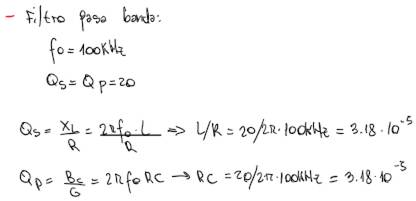 - Filtro pasa banda:
fo = 100KHz
Qs = Qp = 20
Qs = XL/R = 2πfo·L/R => L/R = 20/2π·100kHz = 3.18·10^-5
Qp = Bc/G = 2πfo RC → RC = 20/2π·100kHz = 3.18·10^-5